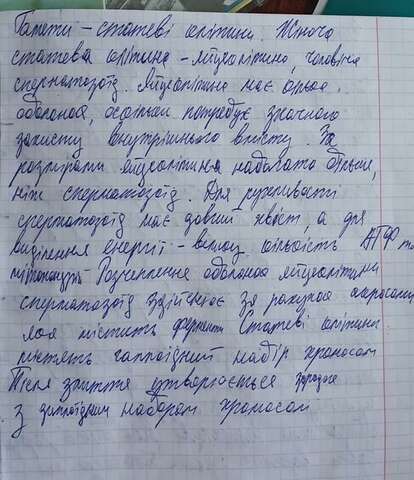 Гамети – статеві клітини. Жіноча
статева клітина – яйцеклітина, чоловіча
сперматозоїд. Яйцеклітина має кілька
оболонок, оскільки потребує значного
захисту внутрішнього вмісту. За
розмірами яйцеклітина набагато більша,
ніж сперматозоїд. Для рухливості
сперматозоїд має довгий хвіст, а для
виділення енергії – велику кількість АТФ та
мітохондрій. Розчеплення оболонок яйцеклітини
сперматозоїд здійснює за рахунок акросоми
яка містить ферменти. Статеві клітини
містять гаплоїдний набір хромосом
Після злиття утворюється зигота
з диплоїдним набором хромосом